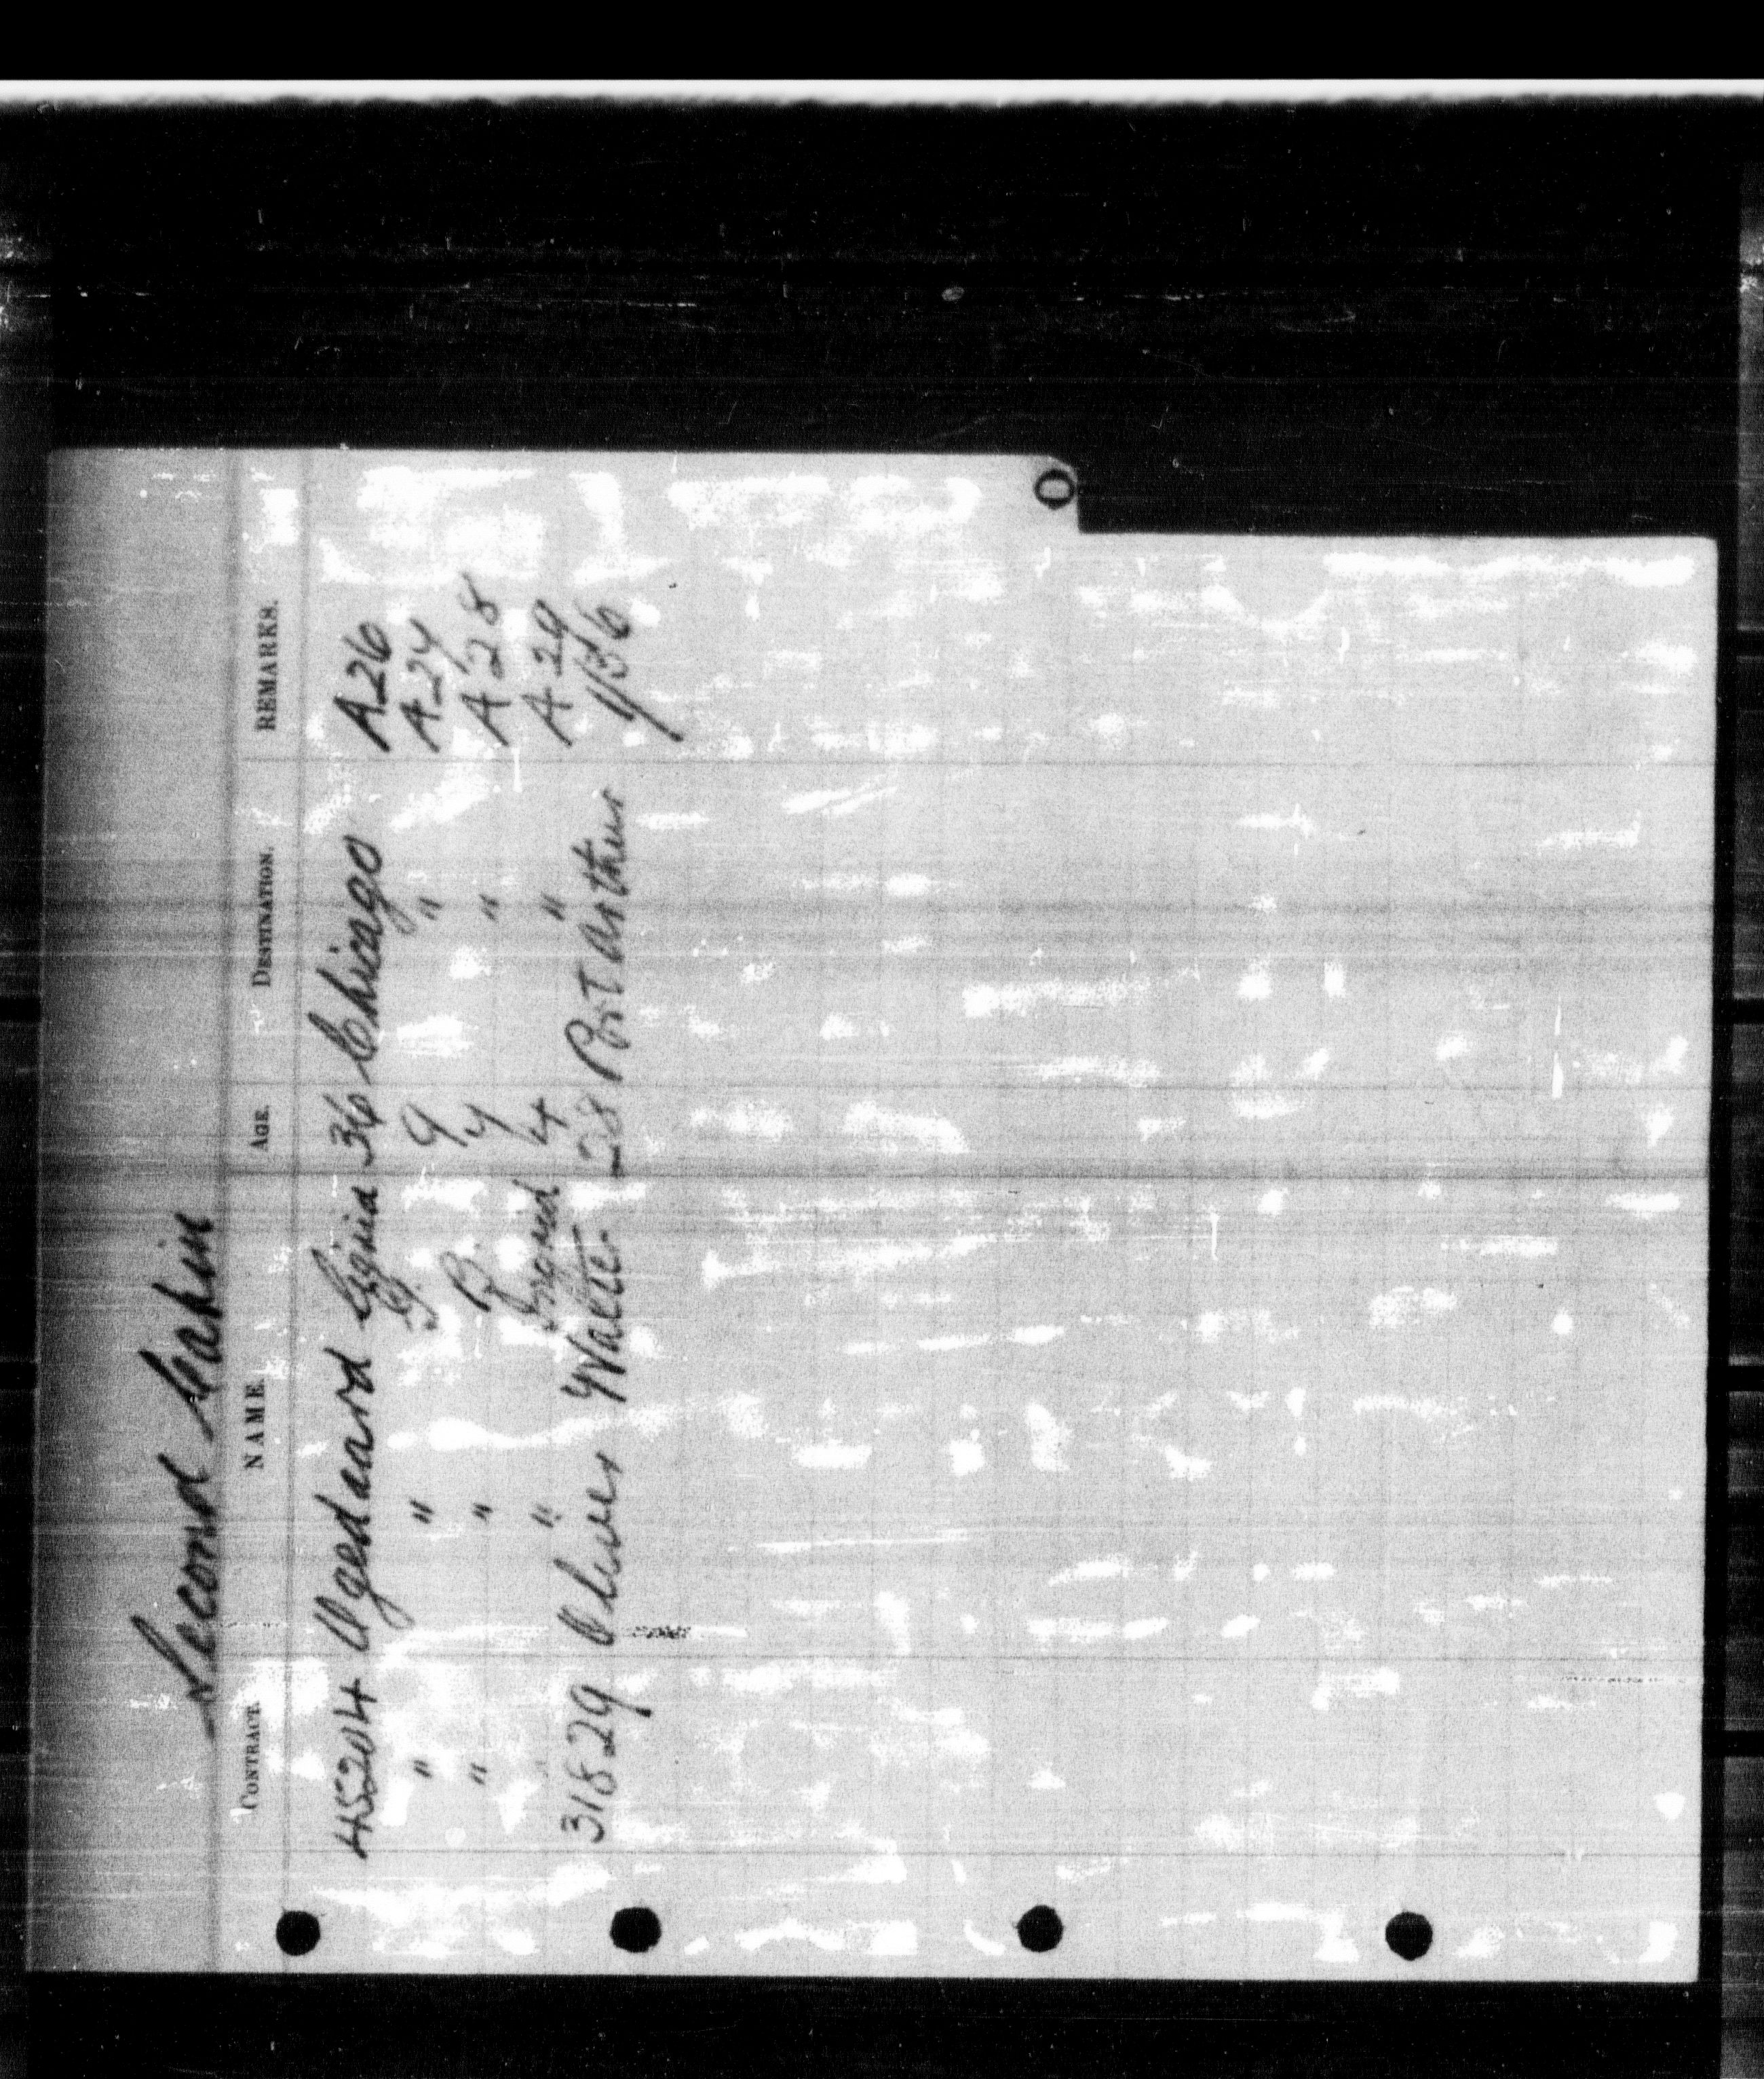 Second Cabin
CONTRACT. NAME. AGE. DESTINATION. REMARKS.
45204 Ogedaard Signia 36 Chicago A26
" " 9 " A27
" " B. 7 " A28
" Ingrid 4 " A29
31829 Oliver Walter 28 Port Arthur 1/36
O